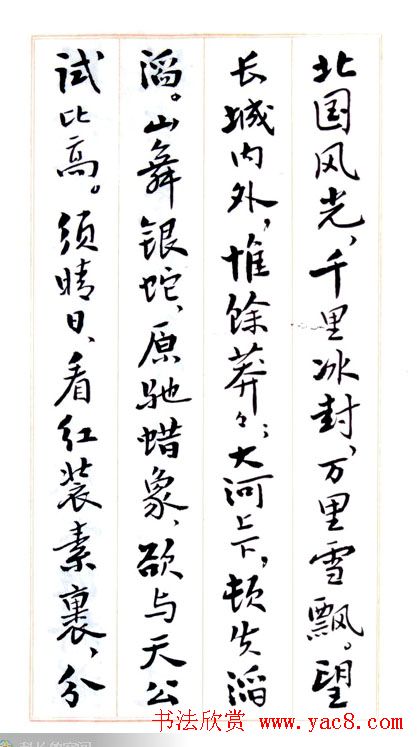 北国风光，千里冰封、万里雪飘。望
长城内外，惟餘莽々；大河上下，顿失滔
滔。山舞银蛇、原驰蜡象、欲与天公
试比高。须晴日、看红装素裹，分
书法欣赏 www.yac8.com